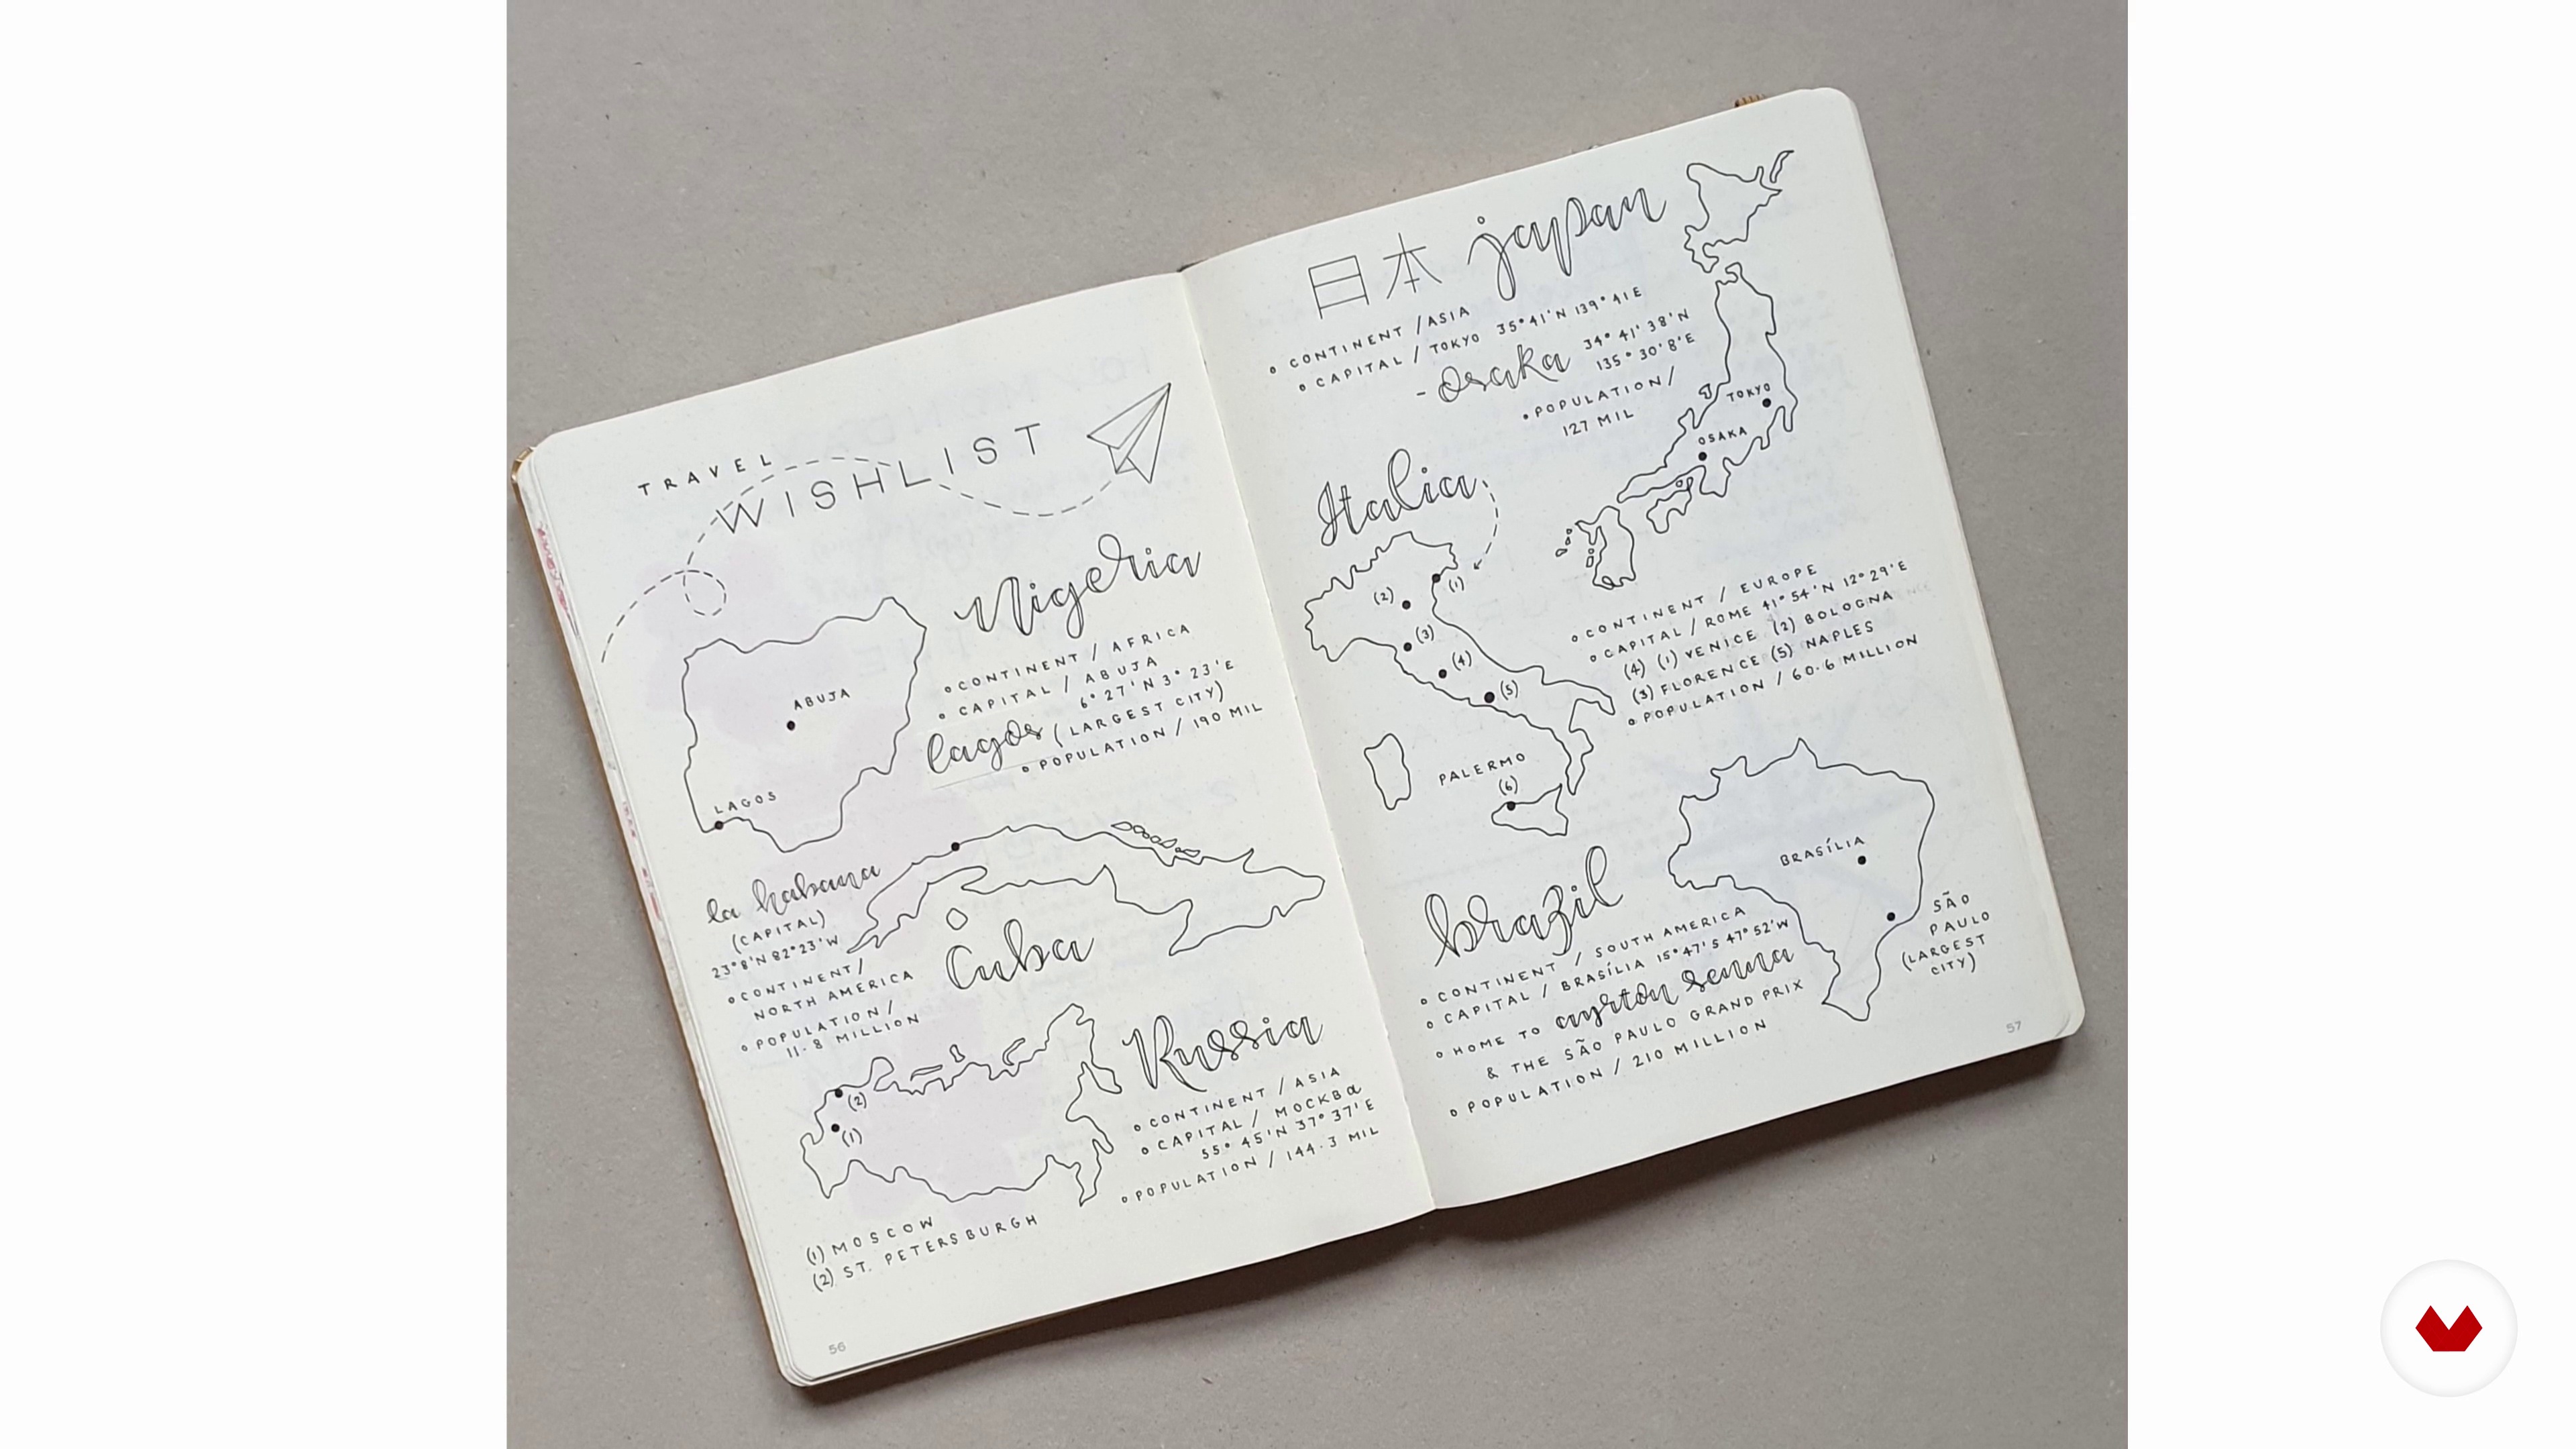 TRAVEL
WISHLIST
Nigeria
CONTINENT / AFRICA
CAPITAL / ABUJA
6° 27' N 3° 23' E
lagos (LARGEST CITY)
POPULATION / 190 MIL
ABUJA
LAGOS
la habana
(CAPITAL)
23°8'N 82°23'W
CONTINENT /
NORTH AMERICA
POPULATION /
11.8 MILLION
Cuba
Russia
CONTINENT / ASIA
CAPITAL / MOCKBA
55° 45'N 37° 37'E
POPULATION / 144.3 MIL
(2)
(1)
(1) MOSCOW
(2) ST. PETERSBURGH
56
日本 japan
CONTINENT / ASIA
CAPITAL / TOKYO 35°41'N 139°41E
- Osaka 34° 41' 38'N
135° 30' 8'E
POPULATION /
127 MIL
TOKYO
OSAKA
Italia
(1)
(2)
(3)
(4)
(5)
PALERMO
(6)
CONTINENT / EUROPE
CAPITAL / ROME 41° 54'N 12° 29'E
(4) (1) VENICE (2) BOLOGNA
(3) FLORENCE (5) NAPLES
POPULATION / 60.6 MILLION
brazil
CONTINENT / SOUTH AMERICA
CAPITAL / BRASÍLIA 15°47'S 47°52'W
HOME TO ayrton senna
& THE SÃO PAULO GRAND PRIX
POPULATION / 210 MILLION
BRASÍLIA
SÃO
PAULO
(LARGEST
CITY)
57